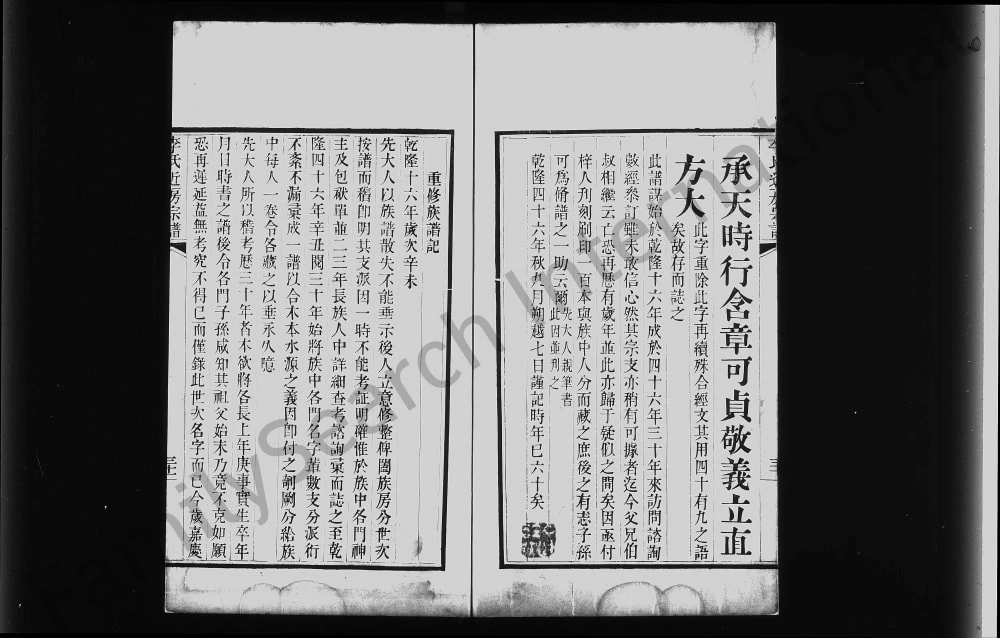 承天時行含章可貞敬義立直
方大 此字重除此字再續殊合經文其用四十有九之語
矣故存而誌之
此譜謀始於乾隆十六年成於四十六年三十年來訪問諮詢
數經參訂雖未敢信心然其宗支亦稍有可據者迄今父兄伯
叔相繼云亡恐再歷有歲年並此亦歸于疑似之間矣因亟付
梓人刋刻刷印百本與族中人分而藏之庶後之有志子孫
可為脩譜之一助云爾 先大人親筆書
此因並刋之
乾隆四十六年秋九月朔越七日謹記時年已六十矣
李氏近房宗譜
重修族譜記
乾隆十六年歲次辛未
先大人以族譜散失不能垂示後人立意修整俾闔族房分世次
按譜而稽卽明其支派因一時不能考証明確惟於族中各門神
主及包袱單並二三年長族人中詳細查考諮詢彙而誌之至乾
隆四十六年辛丑閱三十年始將族中各門名字輩數支分派衍
不紊不漏彙成一譜以合木本水源之義因卽付之剞劂分給族
中每人一卷令各藏之以垂永久憶
先大人所以稽考歷三十年者本欲將各長上年庚事實生卒年
月日時書之譜後令各門子孫咸知其祖父始末乃竟不克如願
恐再遲延益無考究不得已而僅錄此世次名字而已今歲嘉慶
李氏近房宗譜
FamilySearch International